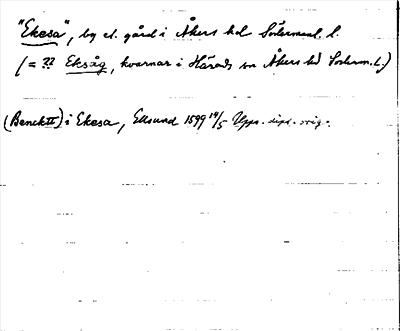 "Ekesa", by el. gård i Åkers hd Södermanl. l.
(= ?? Eksåg, kvarnar i Härads sn Åkers hd Söderm. l.)
(Bencktt) i Ekesa, Ellsund 1599 14/5 Upps. dipl. orig.